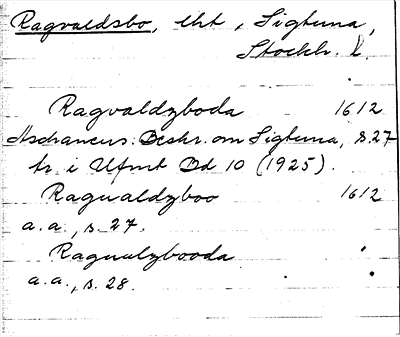 Ragvaldsbo, lht, Sigtuna,
Stockh. l.
Ragvaldzboda 1612
Aschaneus: Beskr. om Sigtuna, s. 27
tr. i Ufmt Bd 10 (1925).
Ragualdzboo 1612
a.a., s. 27.
Ragualzbooda "
a.a., s. 28. "